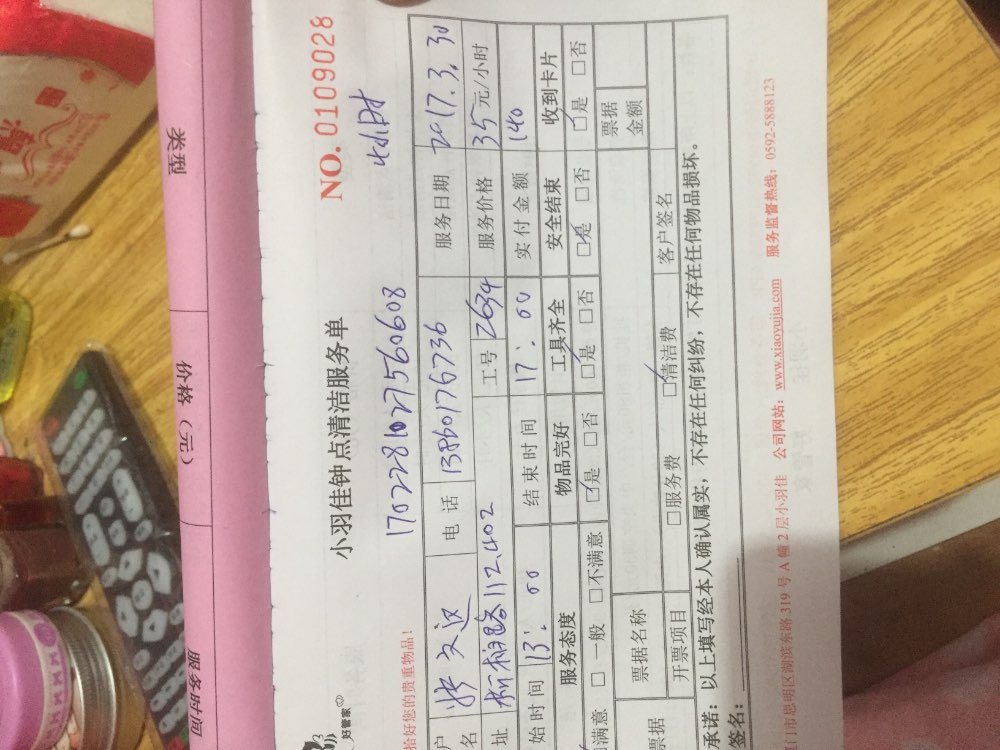 类型
价格（元）
服务时间
好管家
小羽佳钟点清洁服务单
NO. 0109028
170228102756 0608
4小时
拾好您的贵重物品！
户
电 话 13860176736 服务日期 2017.3.30
址 112.402 工号 2634 服务价格 35元/小时
始时间 13：00 结束时间 17：00 实付金额 140
服务态度 物品完好 工具齐全 安全结束 收到卡片
满意 □ 一般 □不满意 □是 □否 □是 □否 □是 □否 □是 □否
票据 票据名称 票据金额
开票项目 □服务费 □清洁费 客户签名
承诺：以上填写经本人确认属实，不存在任何纠纷，不存在任何物品损坏。
签名：
门市思明区湖滨东路 319 号 A 幢 2 层小羽佳 公司网站：www.xiaoyujia.com 服务监督热线：0592-5888123